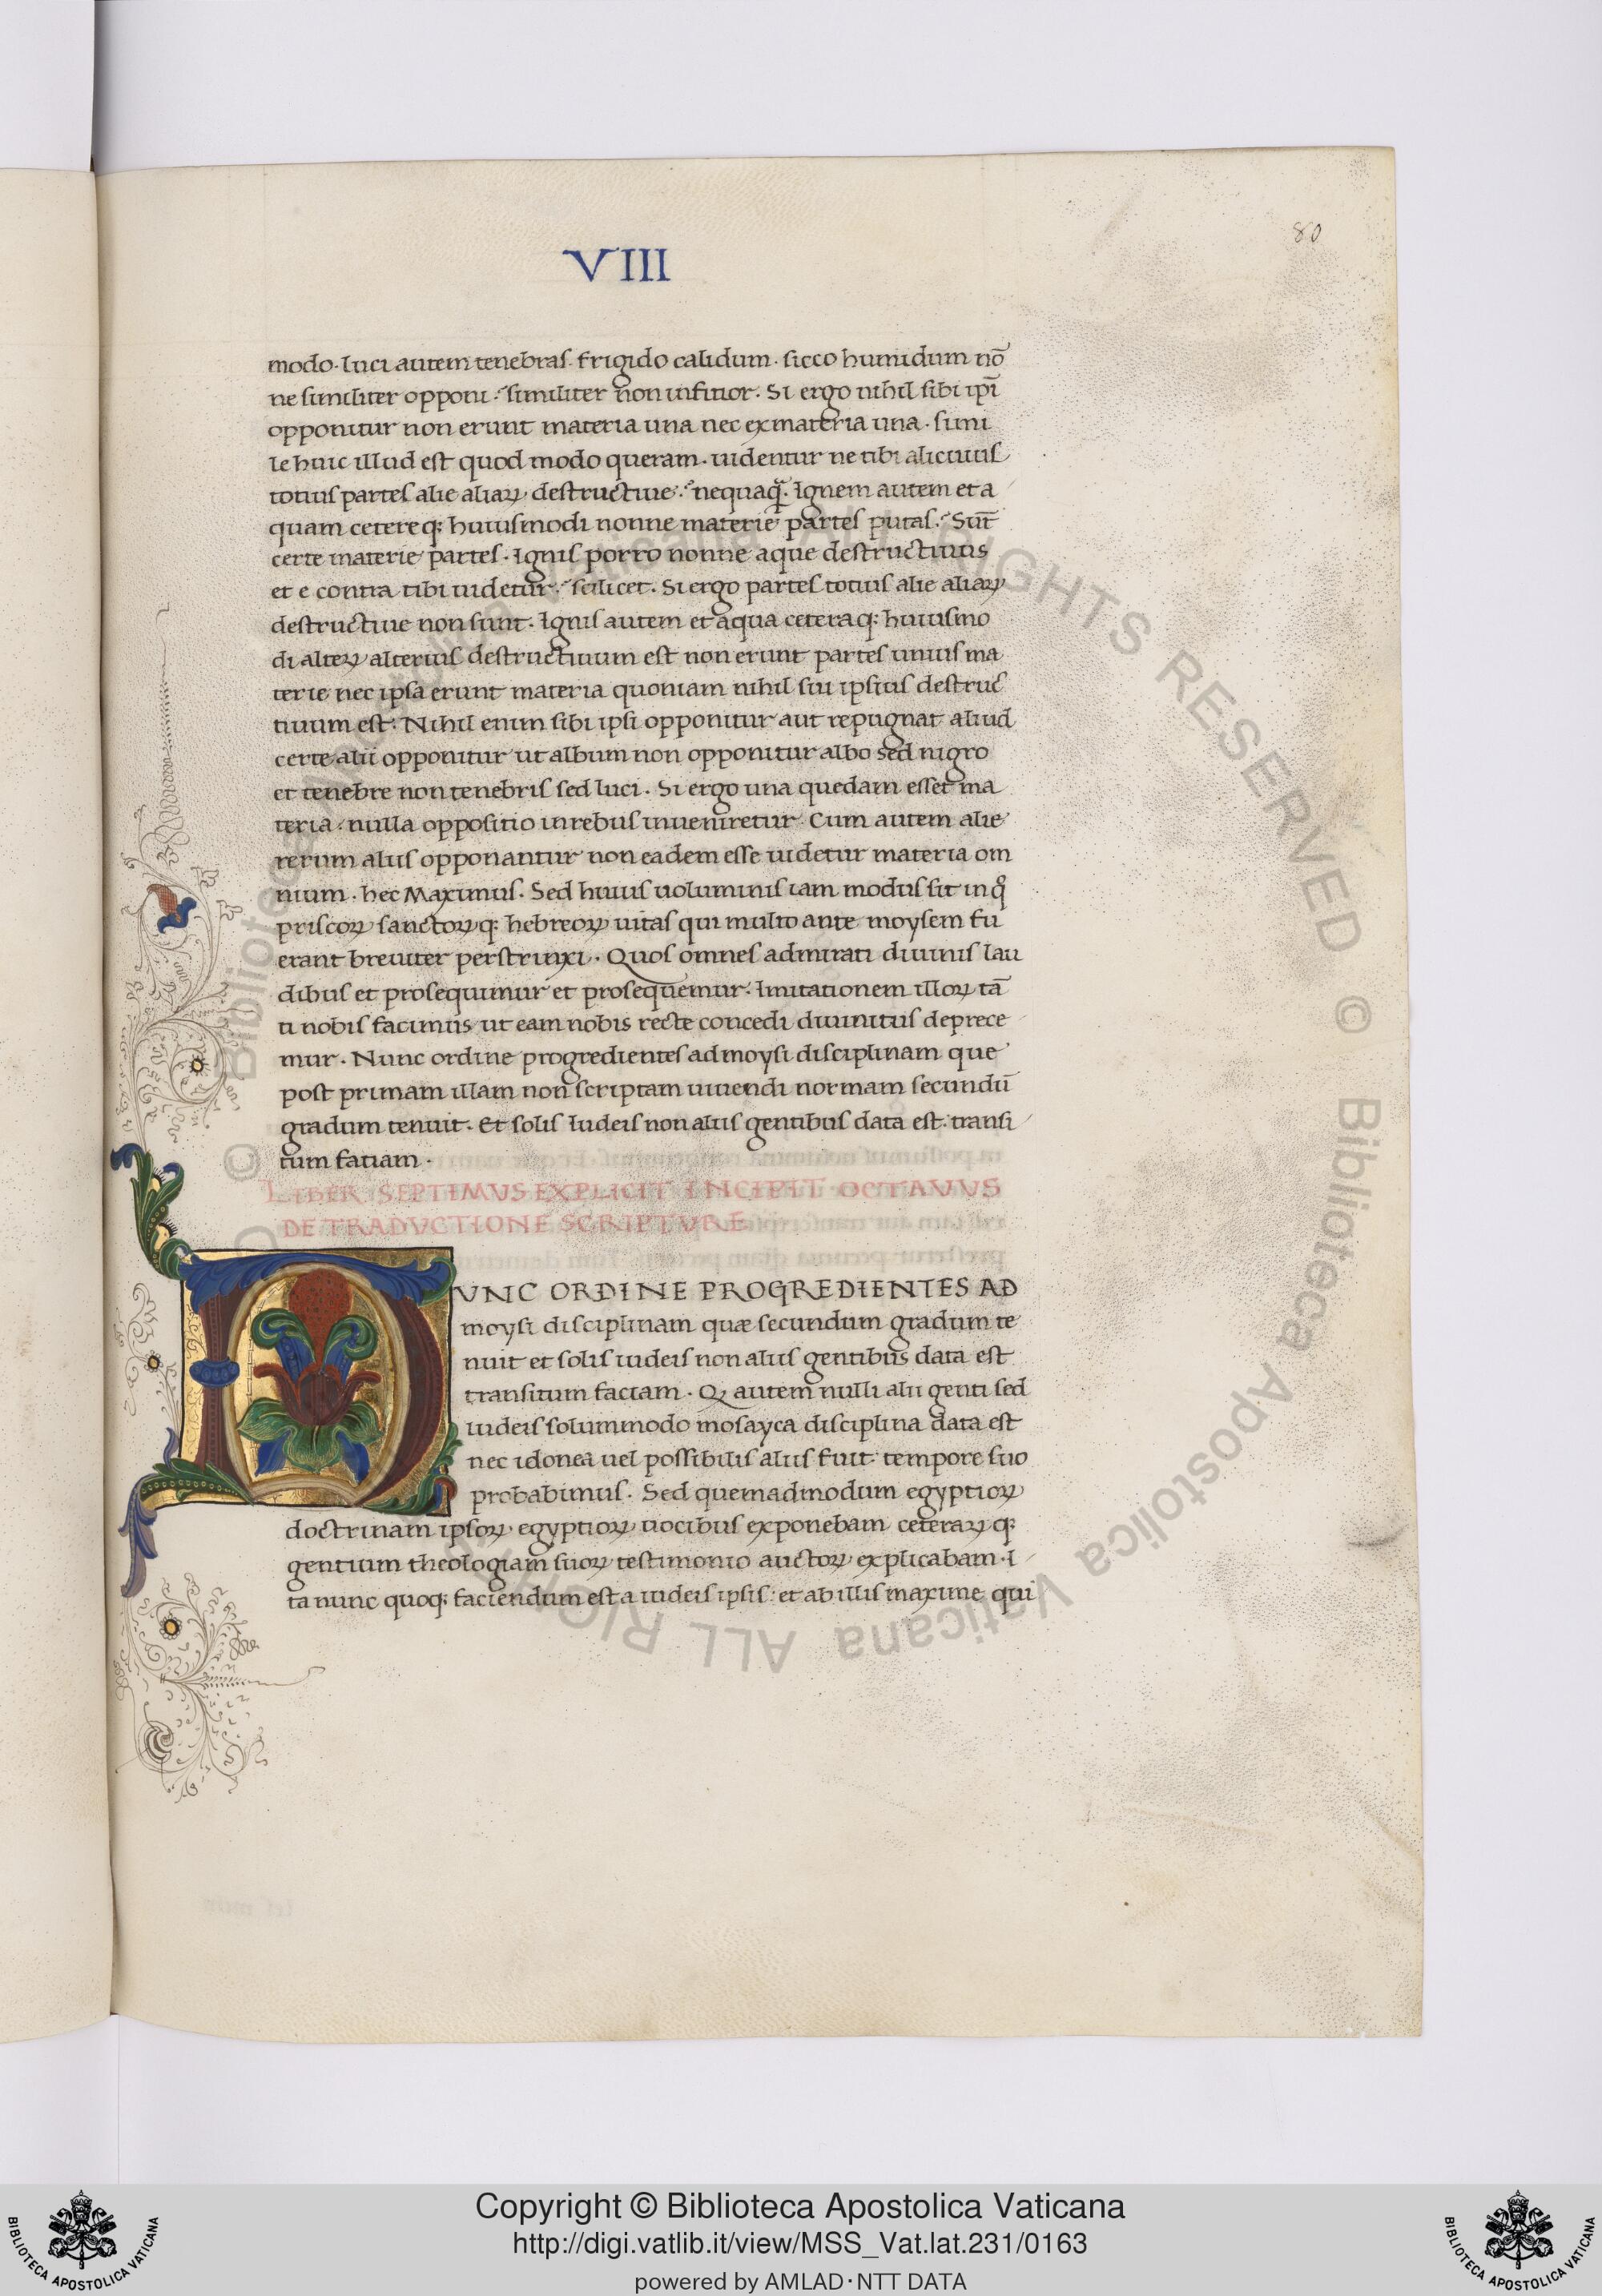 80
VIII
modo· luci autem tenebras· frigido calidum· sicco humidum nō
ne similiter opponi:῾ similiter non infitior· Si ergo nihil sibi ipī
opponitur non erunt materia una nec ex materia una· simi
le huic illud est quod modo queram· uidentur ne tibi alicuius
totius partes alie aliaꝝ destructiue:῾ nequaq̄· Ignem autem et a
quam cetereqꝫ huiusmodi nonne materie partes putas:῾ Sūt
certe materie partes· Ignis porro nonne aque destructiuus
et e contra tibi uidetur:῾ scilicet· Si ergo partes totius alie aliaꝝ
destructiue non sunt· Ignis autem et aqua ceteraqꝫ huiusmo
di alteꝝ alterius destructiuum est non erunt partes unius ma
terie nec ipsa erunt materia quoniam nihil sui ipsius destruc
tiuum est: Nihil enim sibi ipsi opponitur aut repugnat aliud
certe alii opponitur ut album non opponitur albo sed nigro
et tenebre non tenebris sed luci· Si ergo una quedam esset ma
teria· nulla oppositio in rebus inueniretur· Cum autem alie
rerum aliis opponantur non eadem esse uidetur materia om
nium· hec Maximus· Sed huius uoluminis iam modus sit in q̊
priscoꝝ sanctoꝝqꝫ hebreoꝝ uitas qui multo ante moysem fu
erant breuiter perstrinxi· Quos omnes admirati diuinis lau
dibus et prosequimur et prosequemur· Imitationem illoꝝ tā
ti nobis facimus ut eam nobis recte concedi diuinitus deprece
mur· Nunc ordine progredientes ad moysi disciplinam que
post primam illam non scriptam uiuendi normam secundū
gradum tenuit· Et solis Iudeis non aliis gentibus data est· transi
tum fatiam·
LIBER SEPTIMVS EXPLICIT INCIPIT OCTAVVS
DE TRADVCTIONE SCRIPTVRE
NVNC ORDINE PROGREDIENTES AD
moysi disciplinam quæ secundum gradum te
nuit et solis iudeis non aliis gentibus data est
transitum faciam· Qꝫ autem nulli alii genti sed
iudeis solummodo mosayca disciplina data est
nec idonea uel possibilis aliis fuit: tempore suo
probabimus· Sed quemadmodum egyptioꝝ
doctrinam ipsoꝝ egyptioꝝ uocibus exponebam ceteraꝝqꝫ
gentium theologiam suoꝝ testimonio auctoꝝ explicabam· I
ta nunc quoqꝫ faciendum est a iudeis ipsis: et ab illis maxime qui
© Biblioteca Apostolica Vaticana ALL RIGHTS RESERVED
© Biblioteca Apostolica Vaticana ALL RIGHTS RESERVED
BIBLIOTECA APOSTOLICA VATICANA
Copyright © Biblioteca Apostolica Vaticana
http://digi.vatlib.it/view/MSS_Vat.lat.231/0163
powered by AMLAD·NTT DATA
BIBLIOTECA APOSTOLICA VATICANA